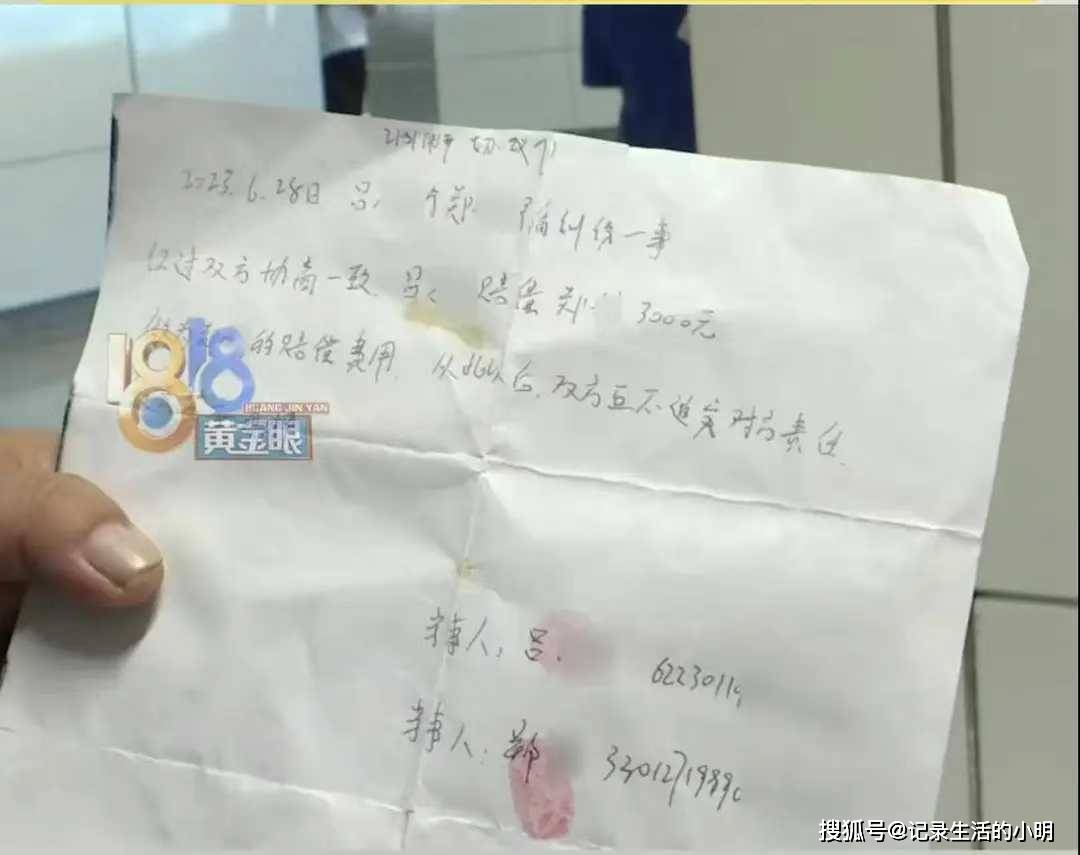 调解协议书
2023.6.28日 吕 与郑 纠纷一事
经过双方协商一致 吕 赔偿郑 3000元
的赔偿费用. 从此以后, 双方互不追究对方责任.
1818
HUANG JIN YAN
黄金眼
事人: 吕
6223011
事人: 郑
3301271989
搜狐号@记录生活的小明